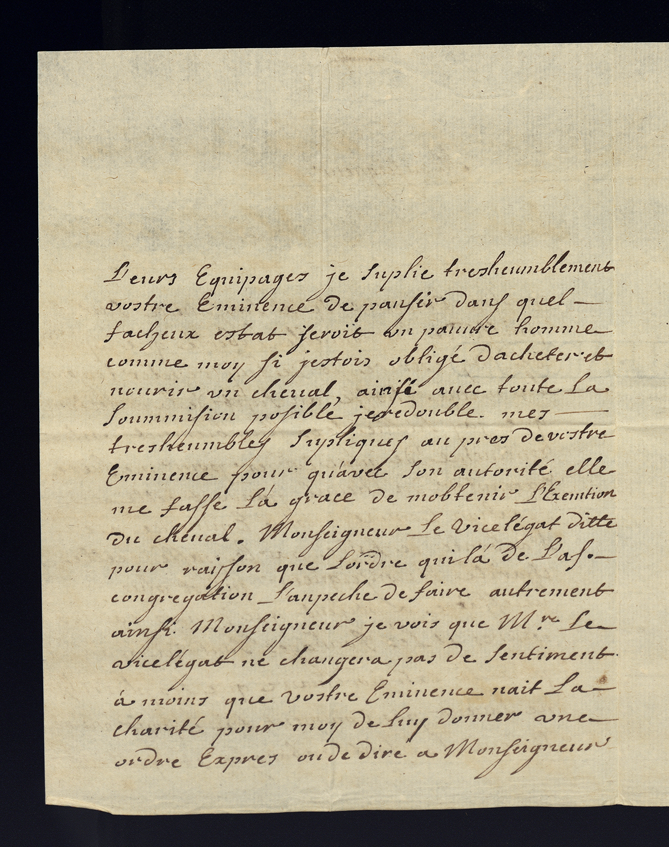 Leurs Equipages je Suplie tresheumblement
vostre Eminence de panser dans quel —
facheux estat seroit un pauvre homme
comme moy si jestois obligé dacheter et
nourir un cheval, ainsé avec toute La
Soummision posible je redouble. mes —
tresheumbles Supliques au pres de vostre
Eminence pour quavec Son autorité elle
me fasse La grace de mobtenir L'Exemtion
du cheval. Monseigneur Le vicelégat ditte
pour raisson que Lordre quila de La s.
congregation Lanpeche de faire autrement
ainsi. Monseigneur je vois que Mr. Le
vicelégat ne changera pas de Sentiment
à moins que vostre Eminence nait La
charité pour moy de Luy donner une
ordre Expres ou de dire a Monseigneur